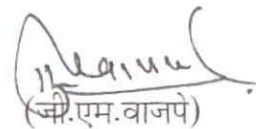 (जी.एम.वाजपे)